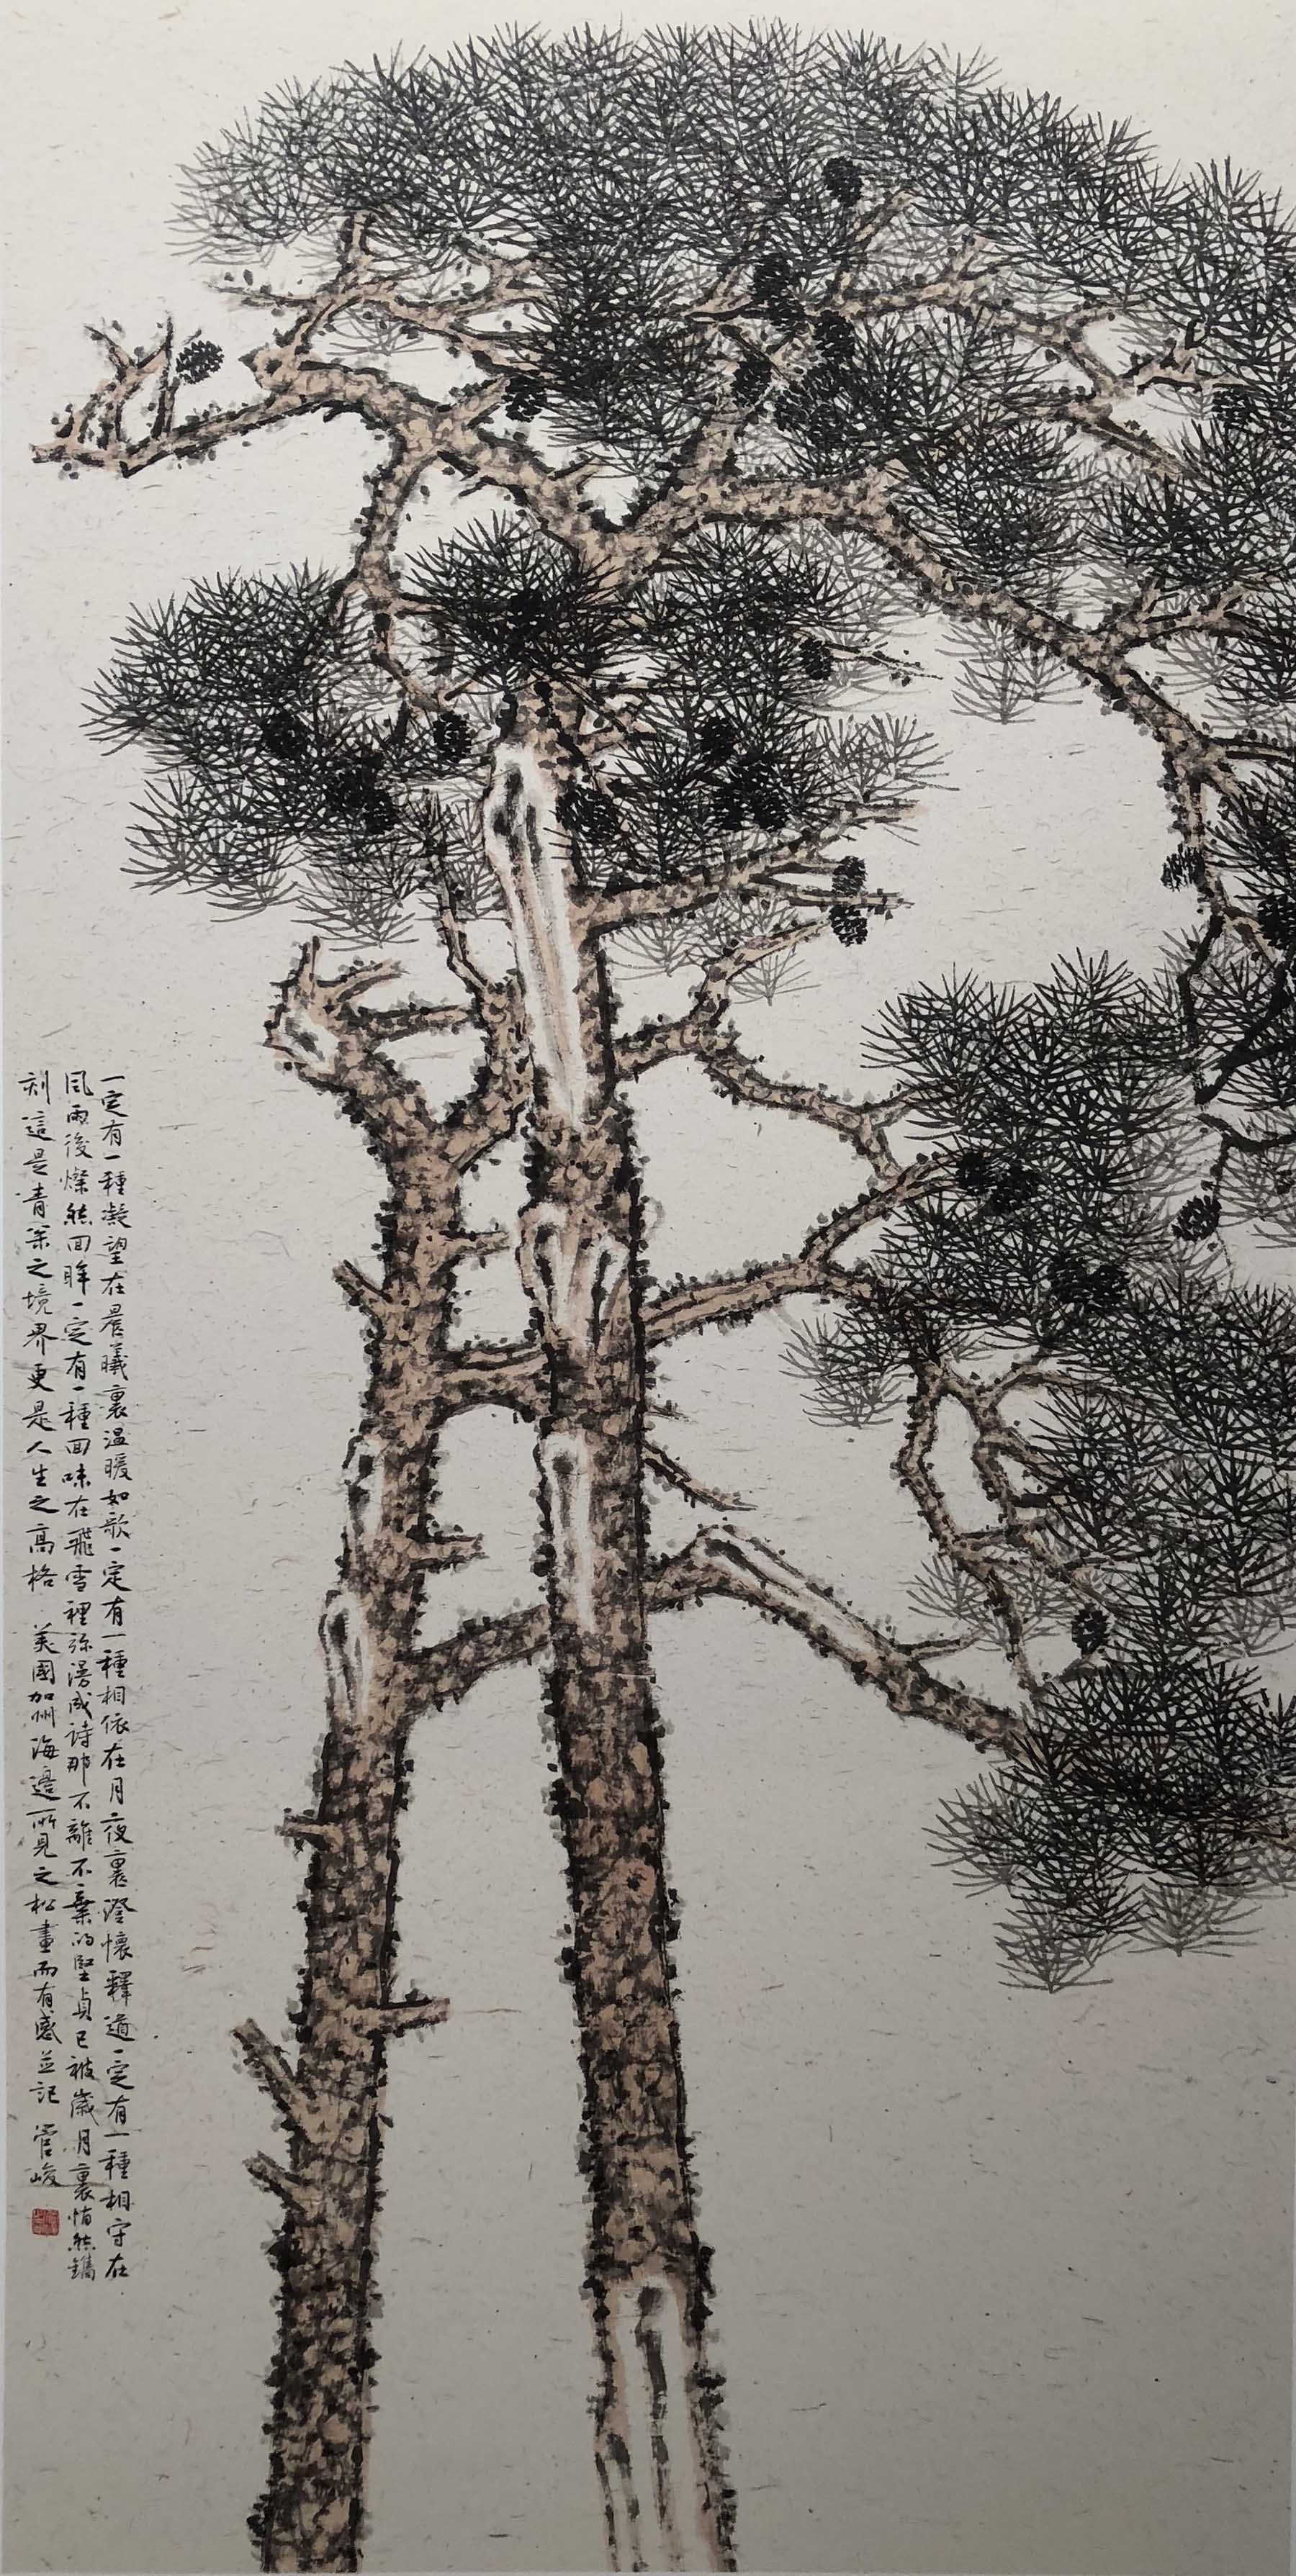 一定有一種凝望在晨曦裏温暖如歌一定有一種相依在月夜裏澄懷釋道一定有一種相守在
風雨後燦然回眸一定有一種回味在飛雪裡弥漫成詩那不離不棄的堅貞已被歲月裏悄然鐫
刻這是青松之境界更是人生之高格 美國加州海邊所見之松畫而有感並記 管峻